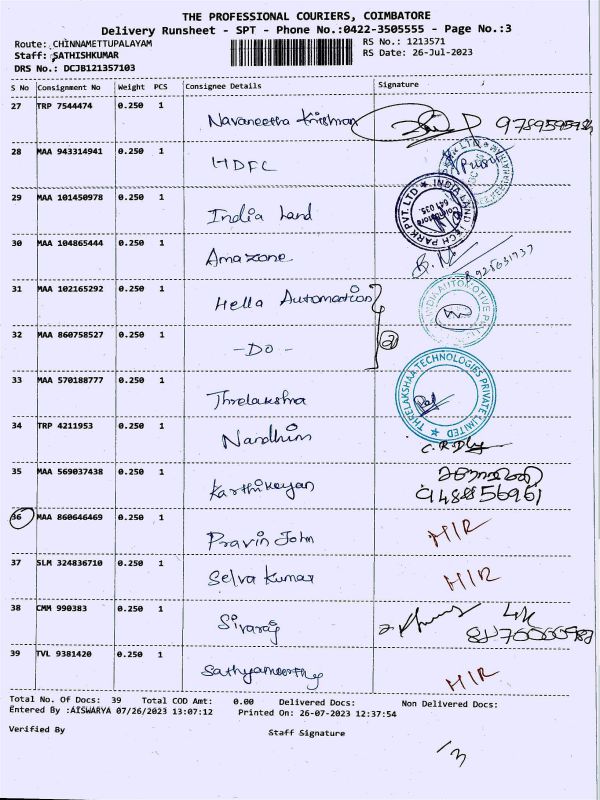 THE PROFESSIONAL COURIERS, COIMBATORE
Delivery Runsheet - SPT - Phone No.:0422-3505555 - Page No.:3
Route: CHINNAMETTUPALAYAM RS No.: 1213571
Staff: SATHISHKUMAR RS Date: 26-Jul-2023
DRS No.: DCJB121357103
S No Consignment No Weight PCS Consignee Details Signature
27 TRP 7544474 0.250 1 Navaneetha Krishnan
28 MAA 943314941 0.250 1 HDFC
29 MAA 101450978 0.250 1 India Land INDIA LAND TECH PARK PVT. LTD. Coimbatore 641 035
30 MAA 104865444 0.250 1 Amazone
31 MAA 102165292 0.250 1 Hella Automation
32 MAA 860758527 0.250 1 -DO-
33 MAA 570188777 0.250 1 Threlaksha THRELAKSHAA TECHNOLOGIES PRIVATE LIMITED
34 TRP 4211953 0.250 1 Nandhini
35 MAA 569037438 0.250 1 Karthikeyan
36 MAA 860646469 0.250 1 Pravin John MIR
37 SLM 324836710 0.250 1 Selva Kumar MIR
38 CMM 990383 0.250 1 Sivaraj
39 TVL 9381420 0.250 1 Sathyamoorthy MIR
Total No. Of Docs: 39 Total COD Amt: 0.00 Delivered Docs: Non Delivered Docs:
Entered By :AISWARYA 07/26/2023 13:07:12 Printed On: 26-07-2023 12:37:54
Verified By Staff Signature